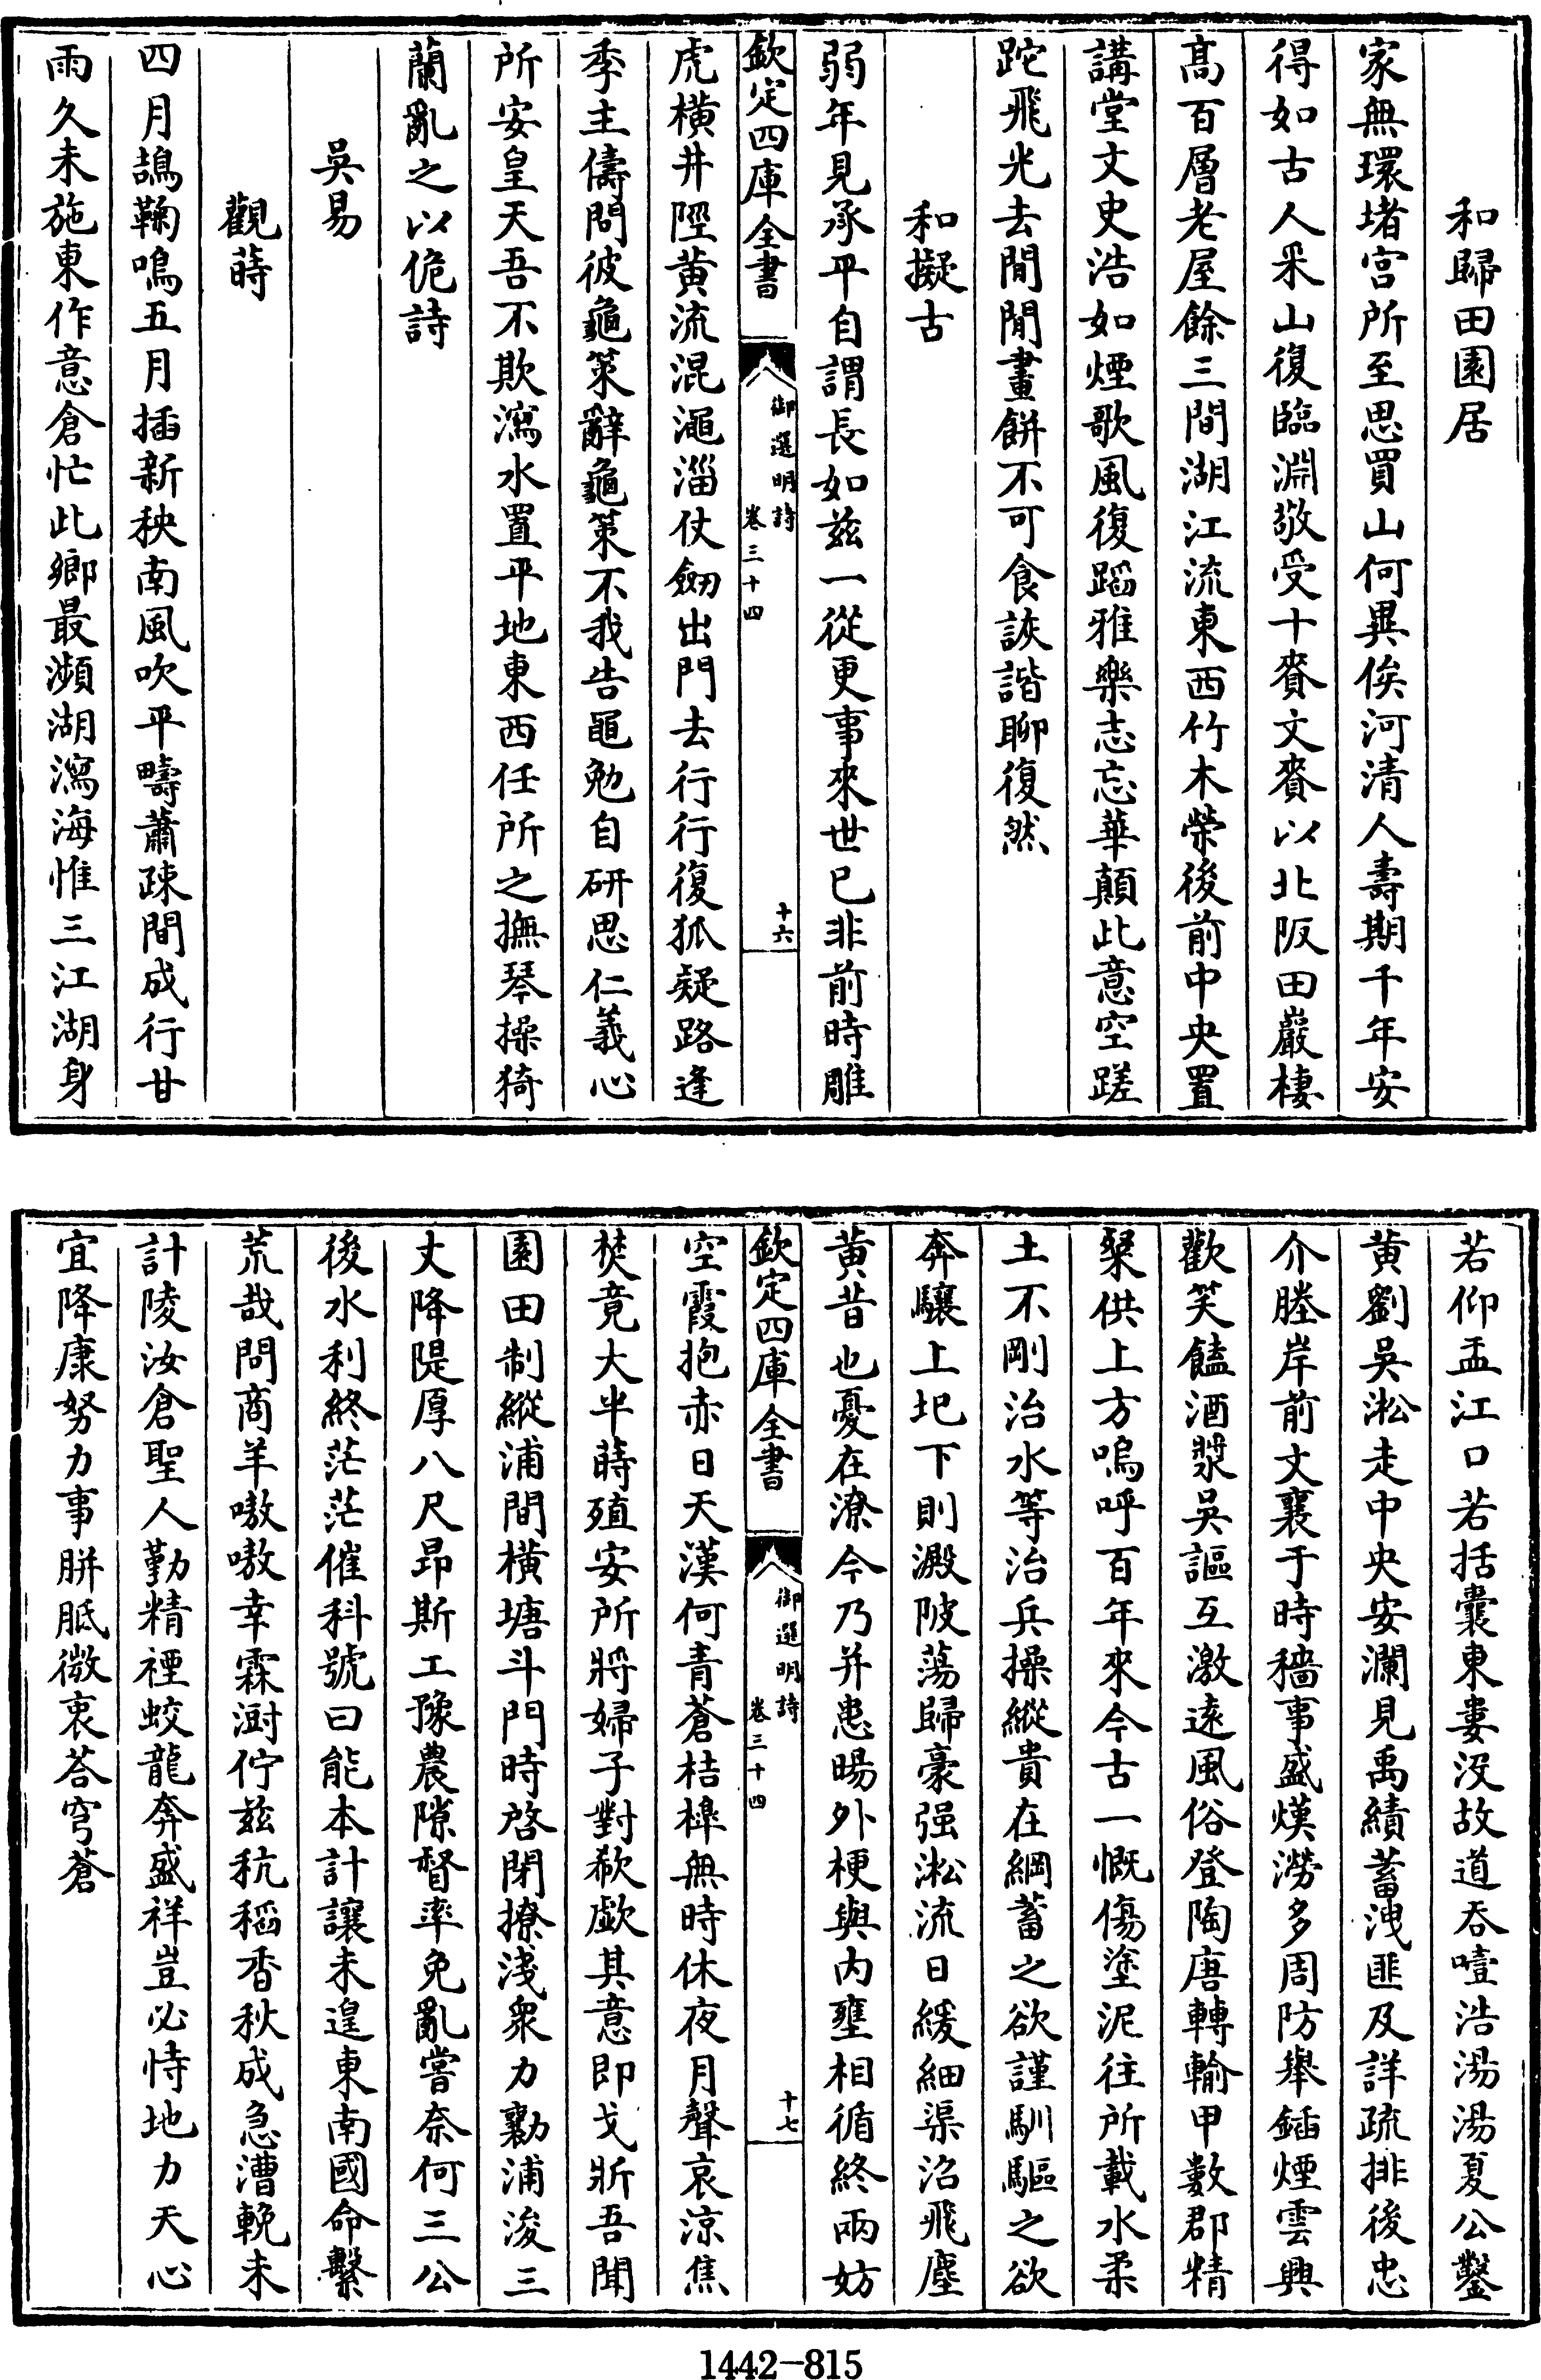 和歸田園居
家無環堵宮所至思買山何異俟河清人壽期千年安
得如古人采山復臨淵敬受十賚文賚以北阪田巖棲
髙百層老屋餘三間湖江流東西竹木榮後前中央置
講堂文史浩如煙歌風復蹈雅樂志忘華顛此意空蹉
跎飛光去閒閒畫餅不可食詼諧聊復然
和擬古
弱年見承平自謂長如兹一從更事來世已非前時雕
欽定四庫全書
御選明詩
卷三十四
十六
虎横井陘黄流混澠淄仗劒出門去行行復狐疑路逢
季主儔問彼龜策辭龜策不我告黽勉自研思仁義心
所安皇天吾不欺瀉水置平地東西任所之撫琴操猗
蘭亂之以佹詩
吳易
觀蒔
四月鴣鞠鳴五月插新秧南風吹平疇蕭疎間成行甘
雨久未施東作意倉忙此鄉最瀕湖瀉海惟三江湖身
若仰盂江口若括囊東婁沒故道吞噎浩湯湯夏公鑿
黄劉吳淞走中央安瀾見禹績蓄洩匪及詳疏排後忠
介塍岸前文襄于時穡事盛熯澇多周防舉鍤煙雲興
歡笑饁酒漿吳謳互激遠風俗登陶唐轉輸甲數郡精
粲供上方嗚呼百年來今古一慨傷塗泥往所載水柔
土不剛治水等治兵操縱貴在綱蓄之欲謹馴驅之欲
奔驤上圯下則澱陂蕩歸豪强淞流日緩細渠沿飛塵
黄昔也憂在潦今乃并患暘外梗與内壅相循終兩妨
欽定四庫全書
御選明詩
卷三十四
十七
空霞抱赤日天漢何青蒼桔槹無時休夜月聲哀涼焦
焚竟大半蒔殖安所將婦子對欷歔其意即戈斨吾聞
園田制縱浦間横塘斗門時啓閉撩淺衆力勷浦浚三
丈降隄厚八尺昂斯工豫農隙督率免亂嘗奈何三公
後水利終茫茫催科號曰能本計讓未遑東南國命繫
荒哉問商羊嗷嗷幸霖澍佇兹秔稻香秋成急漕輓未
計陵汝倉聖人勤精禋蛟龍奔盛祥豈必恃地力天心
宜降康努力事胼胝微衷荅穹蒼
1442-815